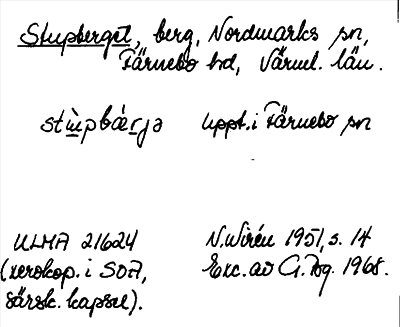 Stupberget, berg, Nordmarks sn,
Färnebo hd, Värml. län.
stùpbǽrjə uppt. i Färnebo sn
ULMA 21624 N. Wirén 1951, s. 14
(xerokop. i SOA, Exc. av G. Bg. 1968.
särsk. kapsel).